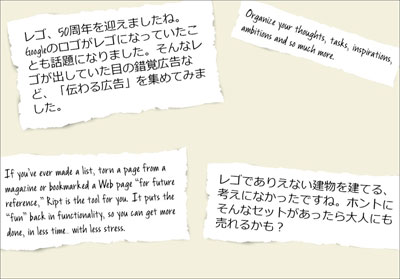 レゴ、50周年を迎えましたね。
Googleのロゴがレゴになっていたこ
とも話題になりました。そんなレ
ゴが出していた目の錯覚広告な
ど、「伝わる広告」を集めてみま
した。
Organize your thoughts, tasks, inspirations,
ambitions and so much more.
If you've ever made a list, torn a page from a
magazine or bookmarked a Web page "for future
reference," Ript is the tool for you. It puts the
"fun" back in functionality, so you can get more
done, in less time. with less stress.
レゴでありえない建物を建てる、
考えになかったですね。ホントに
そんなセットがあったら大人にも
売れるかも？